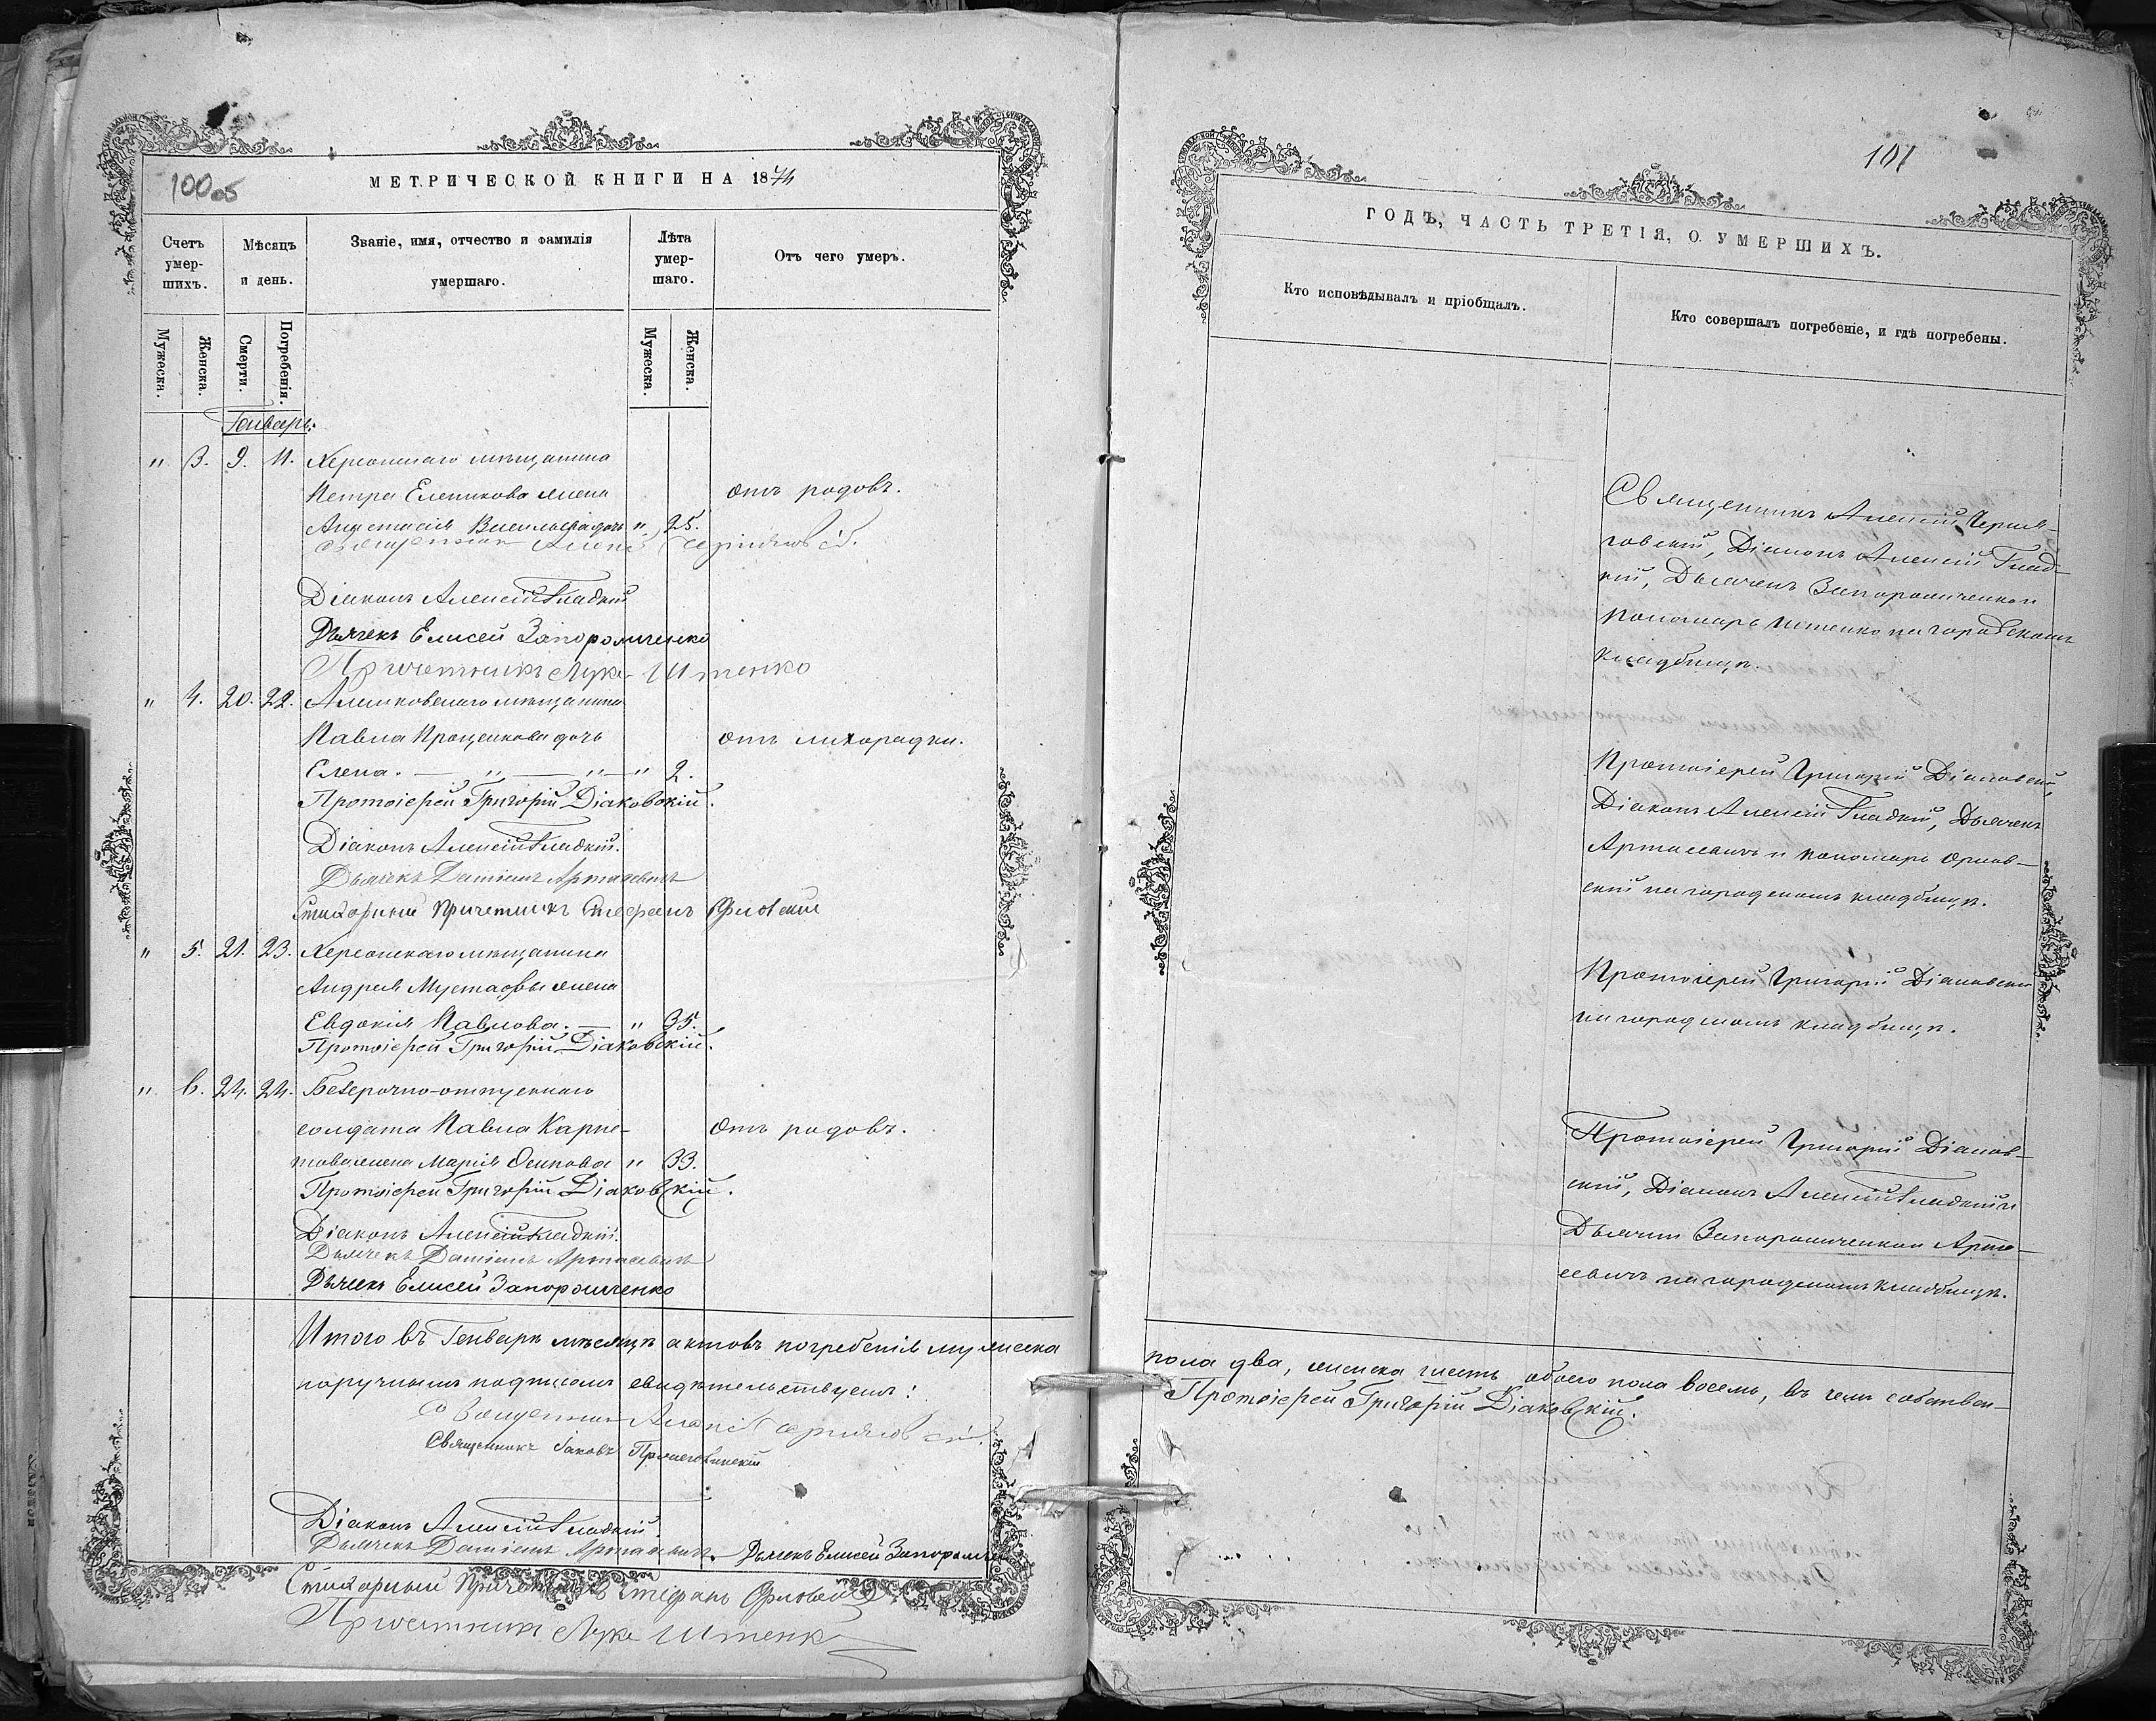 100 об
МЕТРИЧЕСКОЙ КНИГИ НА 1874
Счетъ умер-шихъ.
Мѣсяцъ и день.
Званіе, имя, отчество и фамилія умершаго.
Лѣта умер-шаго.
Отъ чего умеръ.
Мужеска.
Женска.
Смерти.
Погребенія.
Мужеска.
Женска.
Генварь.
" 3. 9. 11. Херсонскаго мѣщанина
Петра Еленикова жена отъ родовъ.
Анастасія " 25.
Священникъ
Діаконъ Алексій Гладкій
Дьячекъ Елисей Запорожченко
Причетникъ Лука Штенко
" 4. 20. 22. Алешковскаго мѣщанина
Павла Проценкова дочь отъ лихорадки.
Елена. — " — " — " 2.
Протоіерей Григорій Діаковскій.
Діаконъ Алексій Гладкій.
Дьячекъ Даміанъ Артасевичъ
Стихарный Причетникъ Стефанъ Орловскій
" 5. 21. 23. Херсонскаго мѣщанина
Андрея Мустафы жена
Евдокія Павлова. — " 35.
Протоіерей Григорій Діаковскій.
" 6. 24. 24. Безсрочно-отпускнаго
солдата Павла Карпе- отъ родовъ.
това жена Марія Осипова " 33.
Протоіерей Григорій Діаковскій.
Діаконъ Алексій Гладкій.
Дьячекъ Даміанъ Артасевичъ
Дьячекъ Елисей Запорожченко
Итого въ Генварѣ мѣсяцѣ актовъ погребенія мужеска
поручнымъ подписомъ свидѣтельствуемъ:
Священникъ
Священникъ Іаковъ
Діаконъ Алексій Гладкій.
Дьячекъ Даміанъ Артасевичъ. Дьячекъ Елисей
Стихарный Причетникъ Стефанъ Орловскій
Причетникъ Лука Штенко
101
ГОДЪ, ЧАСТЬ ТРЕТІЯ, О УМЕРШИХЪ.
Кто исповѣдывалъ и пріобщалъ.
Кто совершалъ погребеніе, и гдѣ погребены.
Священникъ Алексій Черня-
говскій, Діаконъ Алексій Глад-
кій, Дьячекъ Запорожченко и
Пономарь Штенко на городскомъ
кладбищѣ.
Протоіерей Григорій Діаковскій,
Діаконъ Алексій Гладкій, Дьячекъ
Артасевичъ и пономарь Орлов-
скій на городскомъ кладбищѣ.
Протоіерей Григорій Діаковскій
на городскомъ кладбищѣ.
Протоіерей Григорій Діаков-
скій, Діаконъ Алексій Гладкій и
Дьячки Запорожченко и Арта-
севичъ на городскомъ кладбищѣ.
пола два, женска шесть обоего пола восемь, въ чемъ собствен-
Протоіерей Григорій Діаковскій.